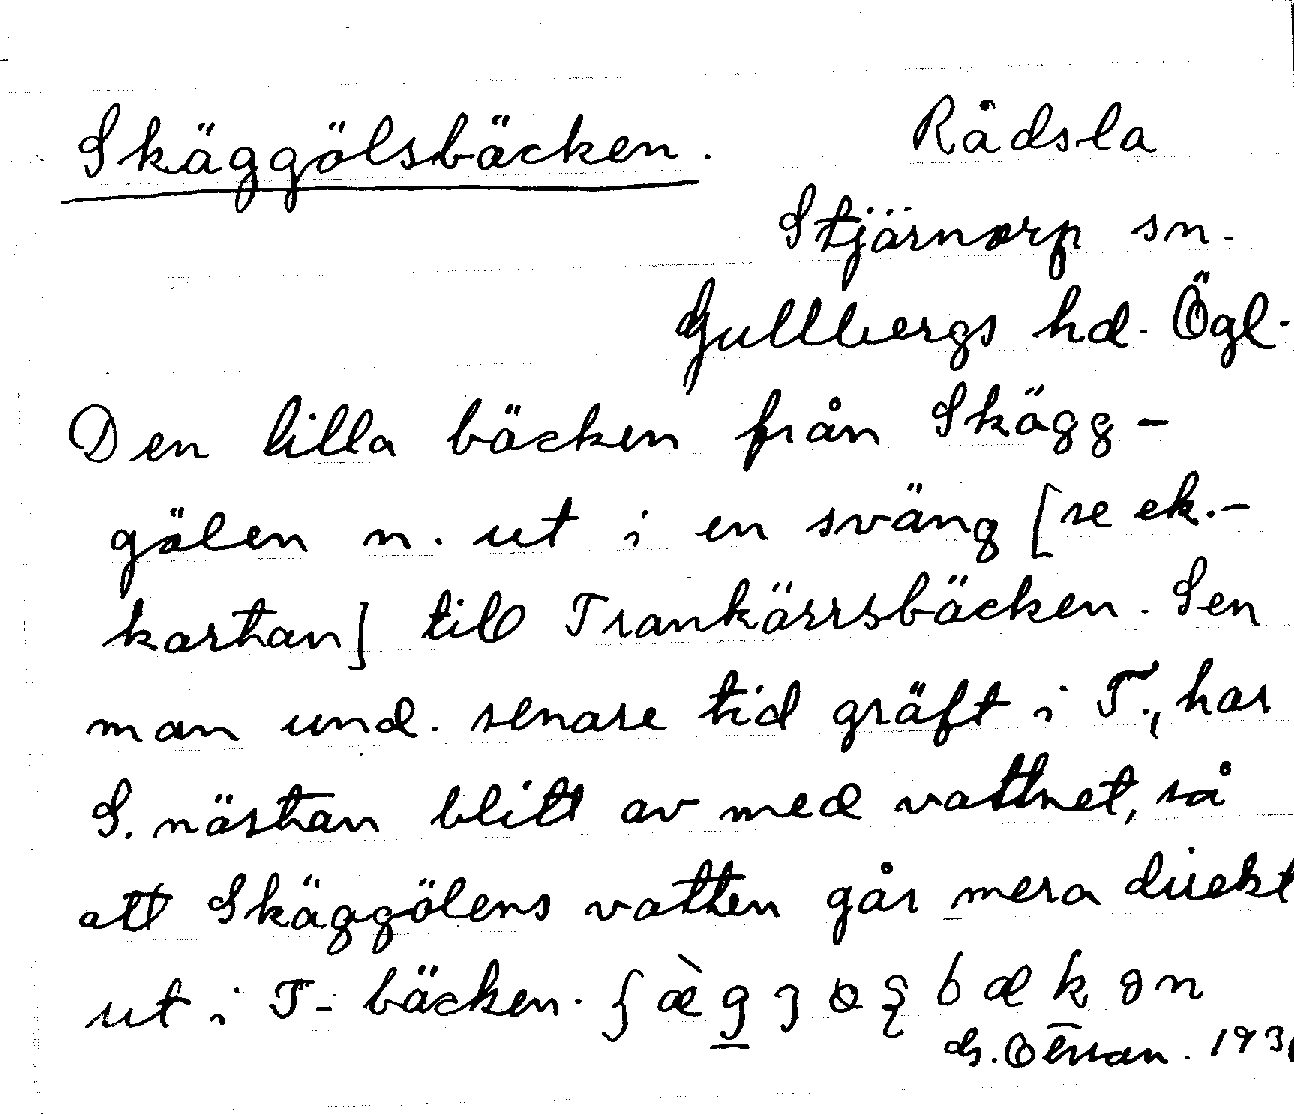 Skäggölsbäcken. Rådsla
Stjärnorp sn.
Gullbergs hd. Ögl.
Den lilla bäcken från Skägg-
gölen n. ut i en sväng [se ek.-
kartan] till Trankärrsbäcken. Sen
man und. senare tid gräft i T., har
S. nästan blitt av med vattnet, så
att Skäggölens vatten går mera direkt
ut i T-bäcken.